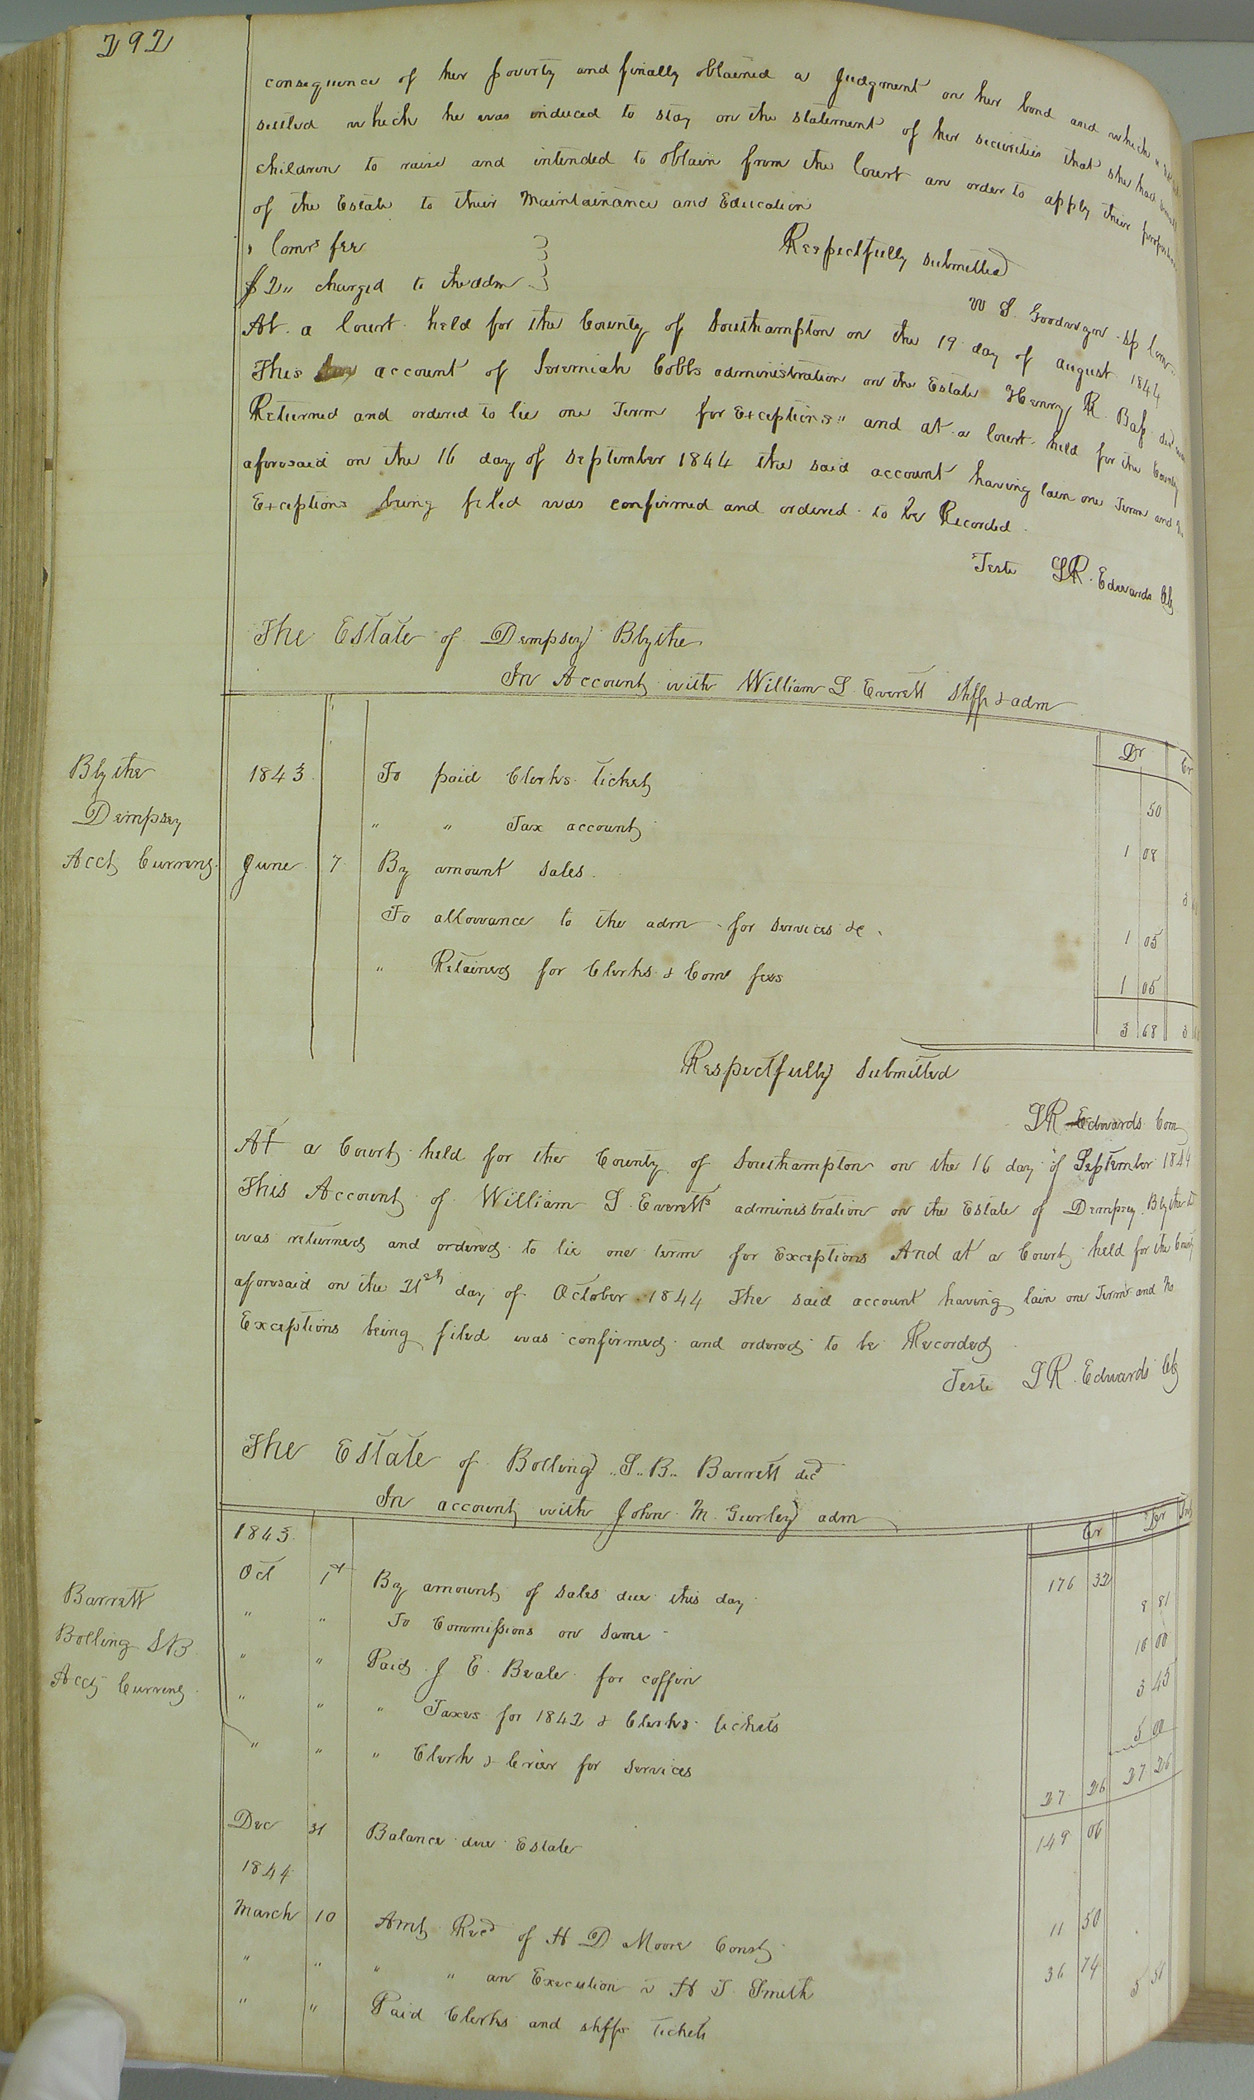 292
consequence of her poverty and finally obtained a Judgment on her bond and which
settled which he was induced to stay on the statement of her securities that she had
children to raise and intended to obtain from the Court an order to apply their
of the Estate to their Maintainance and Education
Comrs fee
$2,, charged to the adm
Respectfully submitted
W S. Goodwyn Sp Com
At a Court held for the County of Southampton on the 19 day of august 1844
This account of Jeremiah Cobbs administration on the Estate Henry R. Bass decd
Returned and ordered to lie one Term for Exceptions" and at a Court held for the County
aforesaid on the 16 day of September 1844 the said account having lain one Term and no
Exceptions being filed was confirmed and ordered to be Recorded.
Teste LR. Edwards Clk
The Estate of Dempsey Blythe
In Account with William S Everett Shff & adm
Dr Cr
Blythe
Dempsey
Acct Current
1843 To paid Clerks ticket 50
" " Tax account 1 08
June 7 By amount Sales. 3
To allowance to the adm for services &c. 1 05
" Retained for Clerks & Coms fees 1 05
3 68 3
Respectfully submitted
LR Edwards Com
At a Court held for the County of Southampton on the 16 day of September 1844
This Account of William S. Everetts administration on the Estate of Dempsey Blythe
was returned and ordered to lie one term for Exceptions And at a Court held for the County
aforesaid on the 21st day of October 1844 The said account having lain one Term and no
Exceptions being filed was confirmed and ordered to be Recorded
Teste LR. Edwards Clk
The Estate of Bolling S.. B.. Barrett decd
In account with John M. Gurley adm
Cr Dr Int
Barrett
Bolling SB
Acct Current
1843
Oct 1st By amount of sales due this day 176 32
" " To Commissions on Same 8 81
" " Paid J E. Beale for coffin 10 00
" " " Taxes for 1842 & Clerks tickets 3 45
" " " Clerk & Crier for services 5 00
27 26 27 26
Dec 31 Balance due Estate 149 06
1844
March 10 Amt Recd of H D Moore Const 11 50
" " " " an Execution v H T Smith 36 74
" " Paid Clerks and shffs tickets 5 51